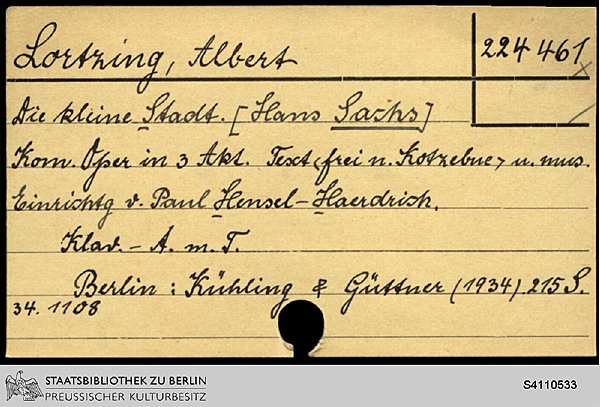 Lortzing, Albert
224 461
Die kleine Stadt. [Hans Sachs]
Kom. Oper in 3 Akt. Text <frei n. Kotzebue> u. mus.
Einrichtg v. Paul Hensel-Haerdrich.
Klav.-A. m. T.
Berlin: Kühling & Güttner (1934). 215 S.
34. 1108
STAATSBIBLIOTHEK ZU BERLIN
PREUSSISCHER KULTURBESITZ
S4110533